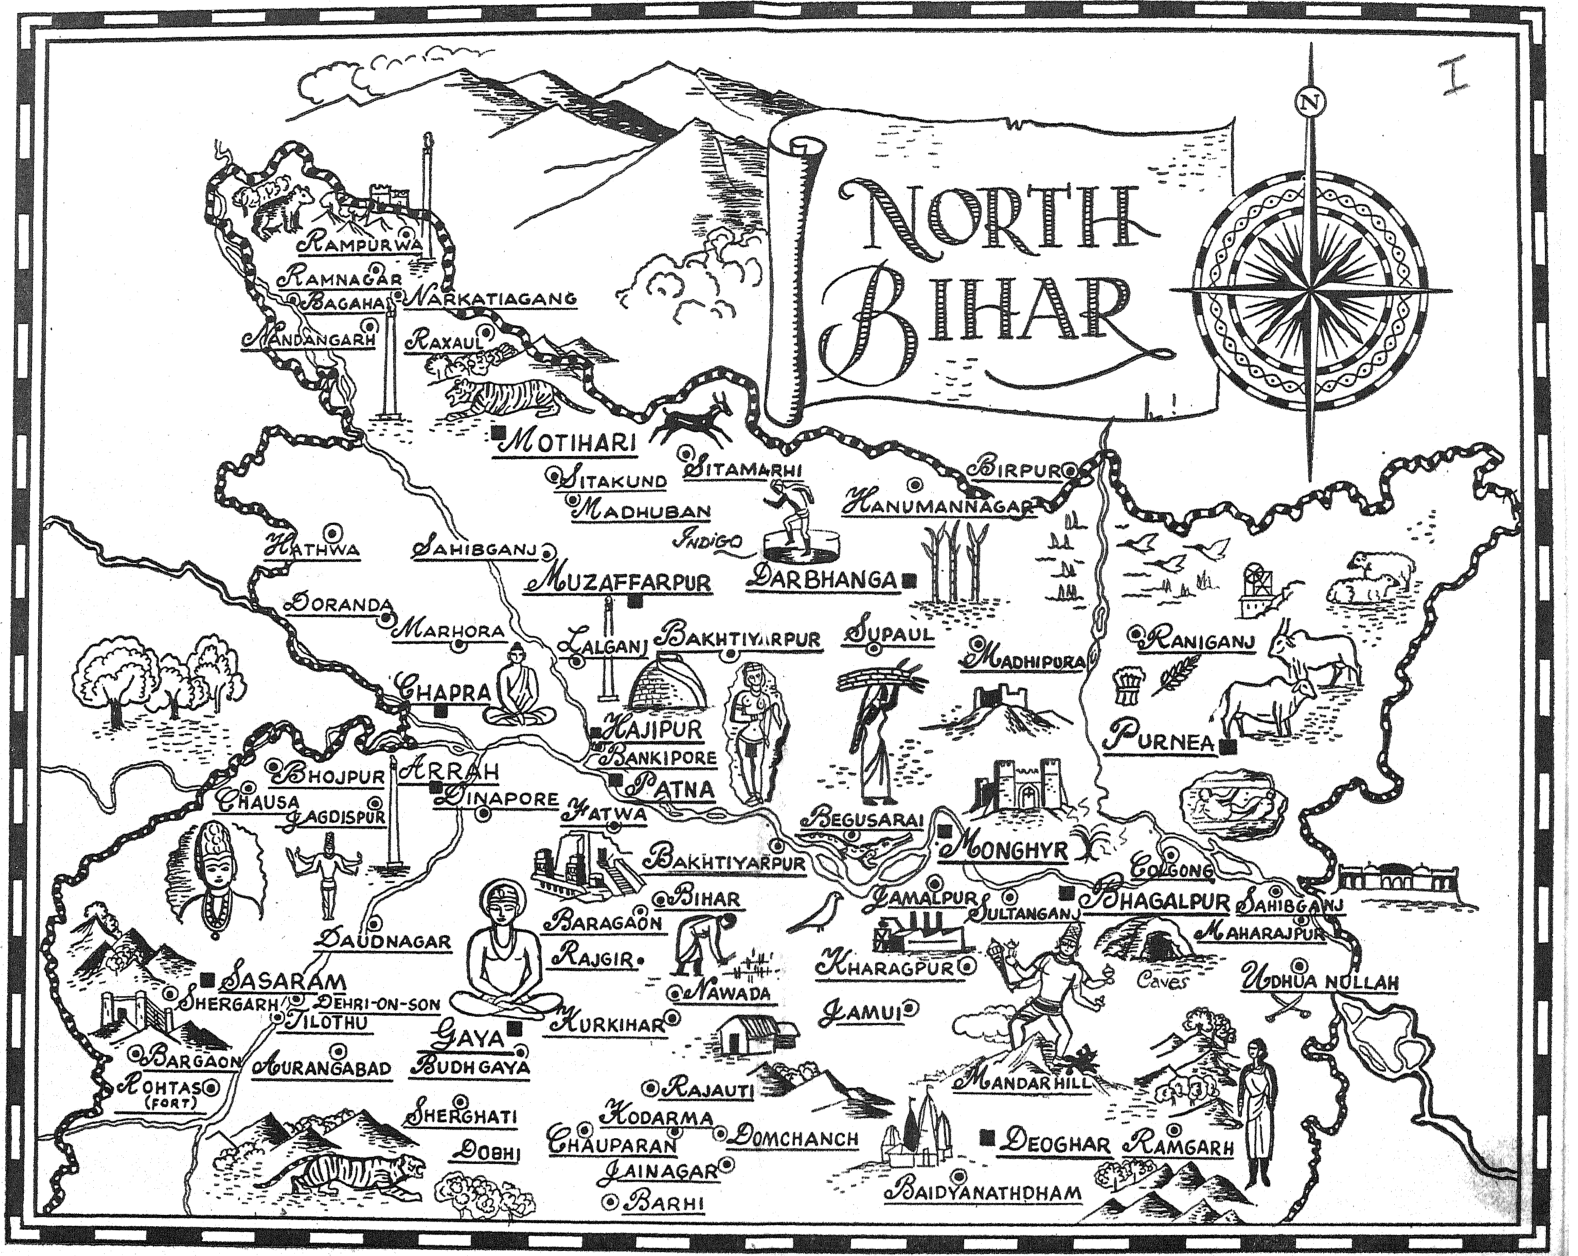 I
N
NORTH
BIHAR
RAMPURWA
RAMNAGAR
BAGAHA
NARKATIAGANG
NANDANGARH
RAXAUL
MOTIHARI
SITAKUND
SITAMARHI
BIRPUR
MADHUBAN
HANUMANNAGAR
INDIGO
HATHWA
SAHIBGANJ
MUZAFFARPUR
DARBHANGA
DORANDA
MARHORA
LALGANJ
BAKHTIYARPUR
SUPAUL
MADHIPURA
RANIGANJ
CHAPRA
HAJIPUR
BANKIPORE
PURNEA
BHOJPUR
ARRAH
PATNA
CHAUSA
DINAPORE
JAGDISPUR
FATWA
BEGUSARAI
MONGHYR
BAKHTIYARPUR
COLGONG
BIHAR
JAMALPUR
SULTANGANJ
BHAGALPUR
SAHIBGANJ
BARAGAON
MAHARAJPUR
DAUDNAGAR
RAJGIR
KHARAGPUR
CAVES
UDHUA NULLAH
SASARAM
SHERGARH
DEHRI-ON-SON
NAWADA
TILOTHU
KURKIHAR
JAMUI
GAYA
BARGAON
AURANGABAD
BUDH GAYA
MANDAR HILL
ROHTAS
(FORT)
RAJAUTI
SHERGHATI
KODARMA
CHAUPARAN
DOMCHANCH
DEOGHAR
RAMGARH
DOBHI
JAINAGAR
BAIDYANATHDHAM
BARHI